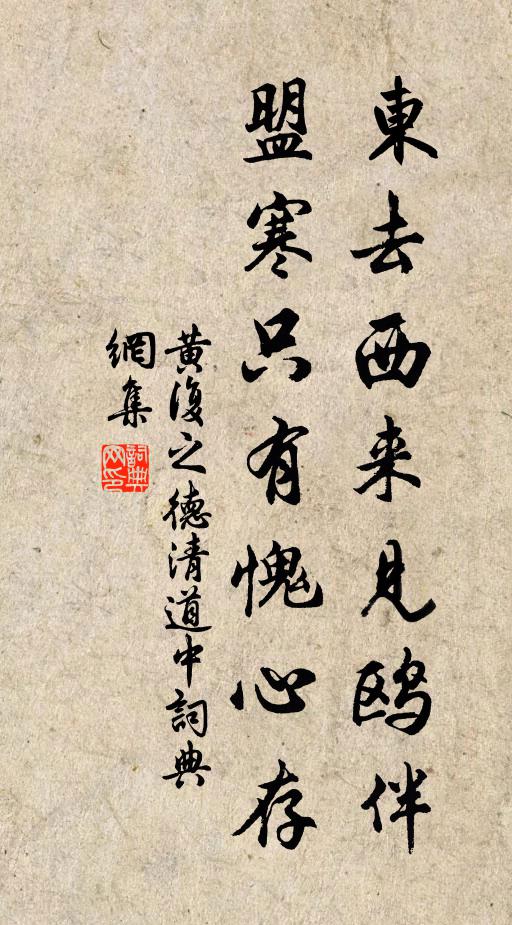 東去西来見鸥伴
盟寒只有愧心存
黄復之德清道中詞典
網集
詞典網印